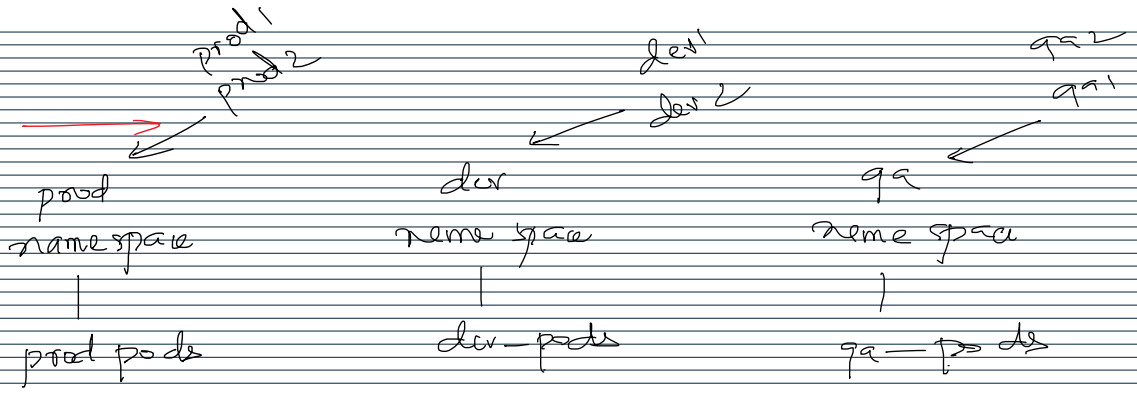 prod1
prod2
dev1
dev2
qa2
qa1
prod
namespace
prod pods
dev
neme space
dev-pods
qa
neme space
qa-pods